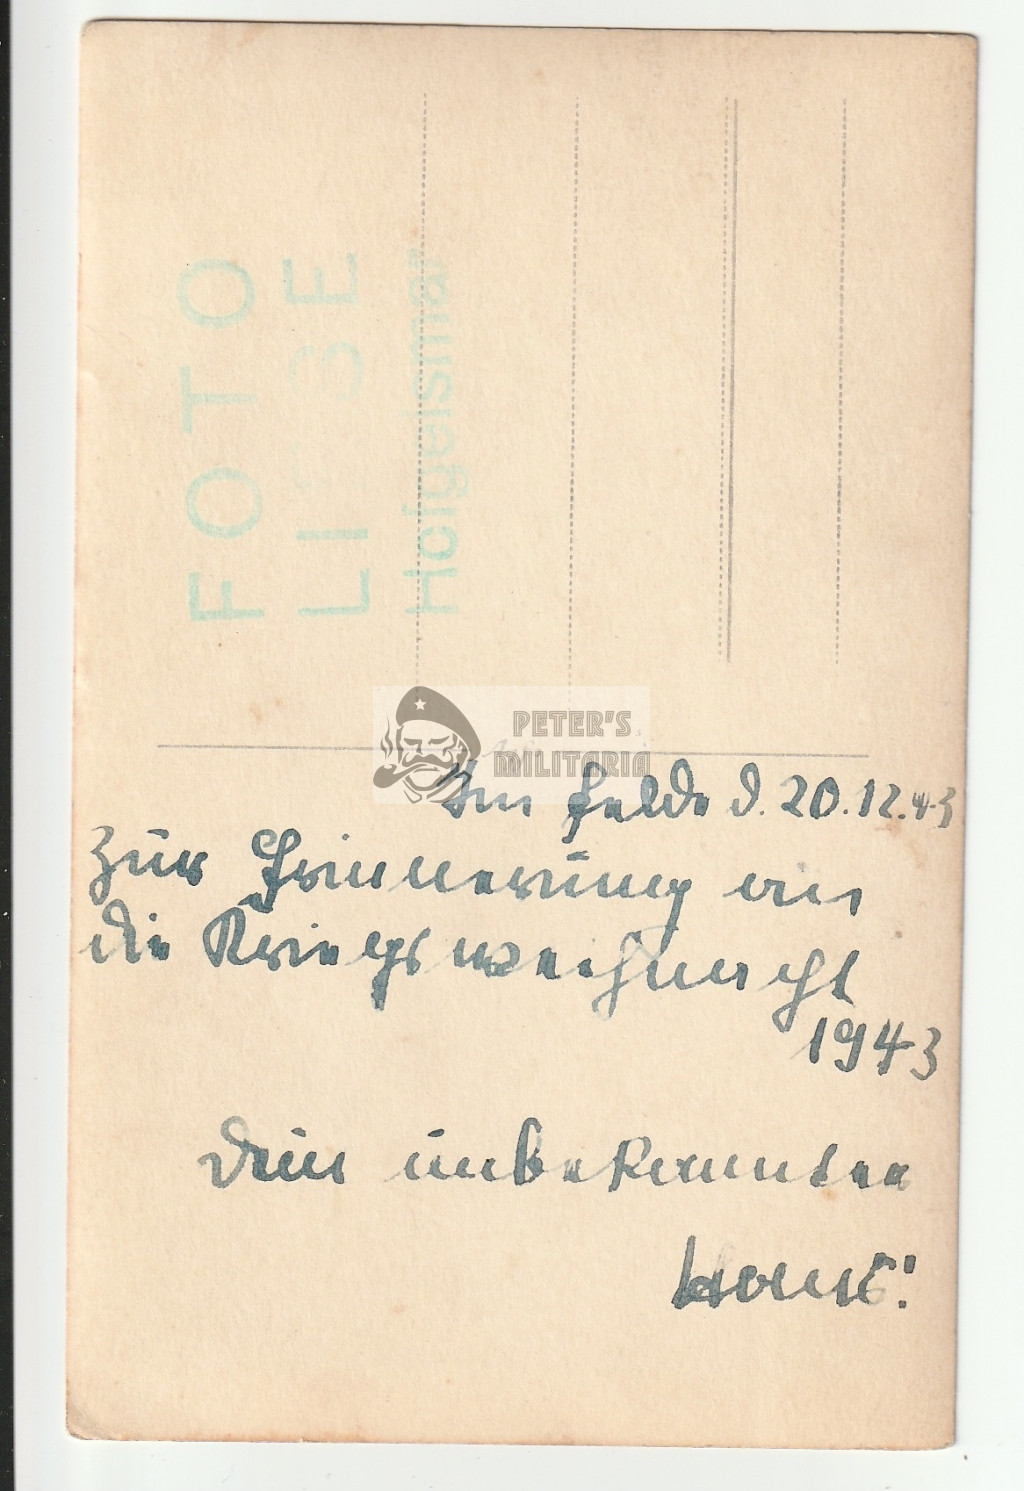 FOTO
LIESE
Hofgeismar
PETER'S
MILITARIA
Im Felde d. 20.12.43
Zur Erinnerung an
die Kriegsweihnacht
1943
Dein unbekannter
Hans!